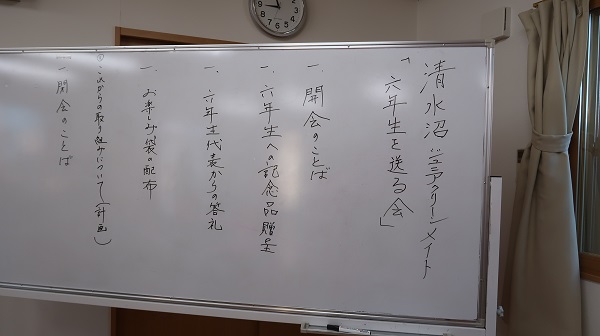 清水沼ジュニアクリーンメイト
「六年生を送る会」
一、開会のことば
一、六年生への記念品贈呈
一、六年生代表からの答礼
一、お楽しみ袋の配布
①これからの取り組みについて(計画)
一、閉会のことば